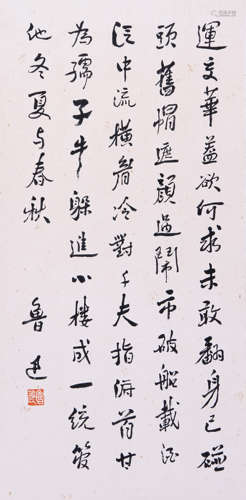 運交華蓋欲何求未敢翻身已碰
頭舊帽遮顏過鬧市破船載酒
泛中流橫眉冷對千夫指俯首甘
為孺子牛躲進小樓成一統管
他冬夏与春秋
魯迅